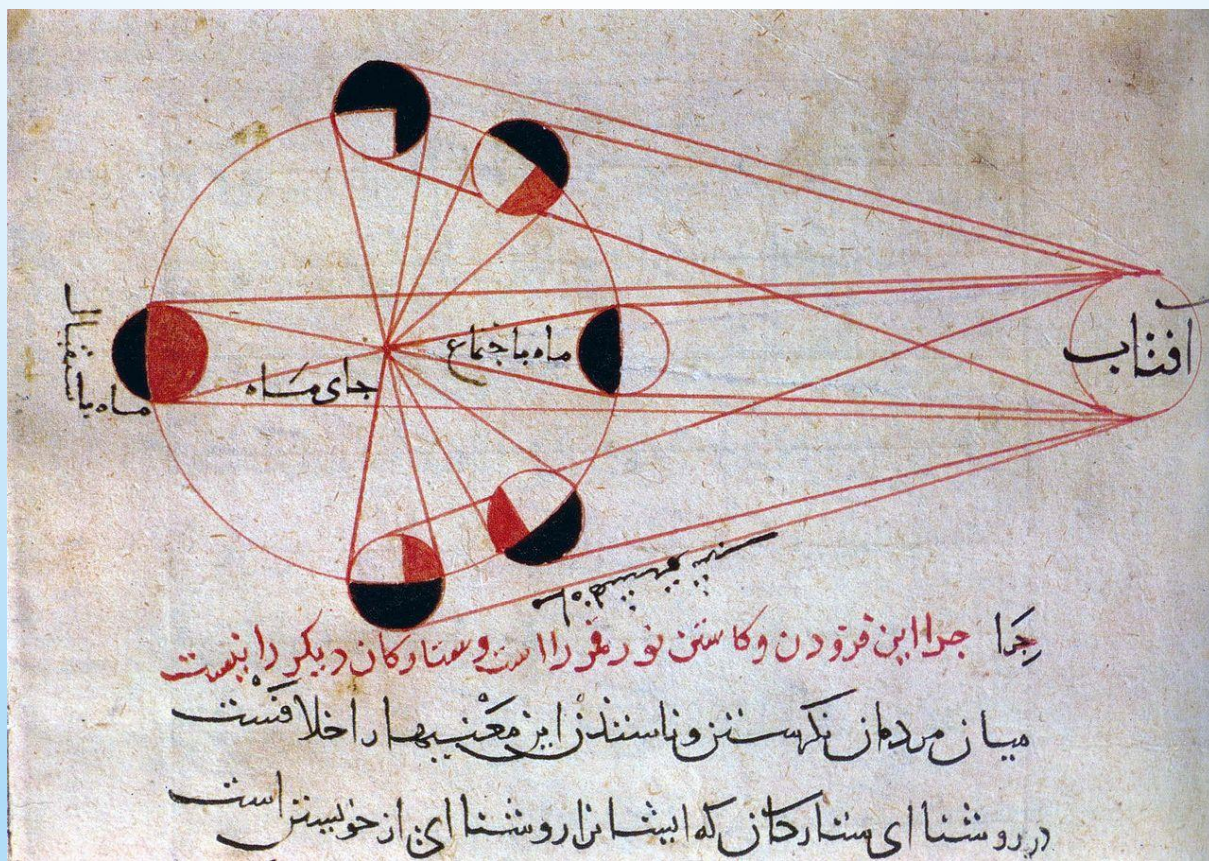 افتاب
ماه باجتماع
جای ماه
ماه باستقبال
چرا جرا این فزودن و کاستن نور قمر را است و ستارکان دیکر را نیست
میان مردمان نکرستن و ناسندن این معنیها را خلافست
در روشنای ستارکان که ایشانرا روشنای از خویشتن است